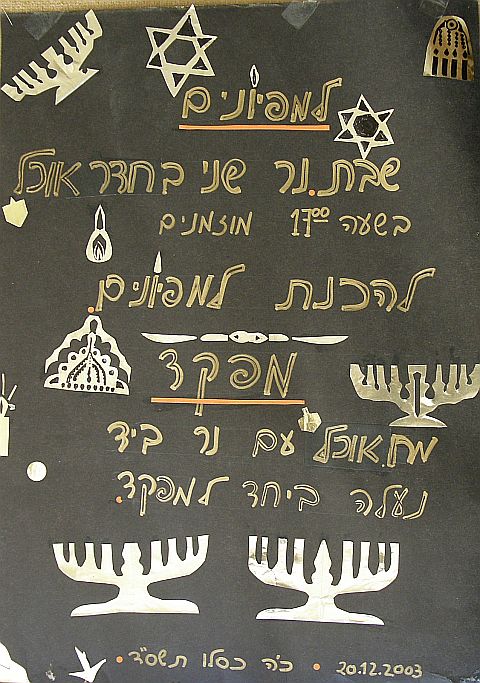 למפיונים
שבת. נר שני בחדר אוכל
בשעה 17:00 מוזמנים
להכנת למפיונים.
מפקד
מח. אוכל עם נר ביד
נעלה ביחד למפקד.
20.12.2003 • כ"ה כסלו תשס"ד •